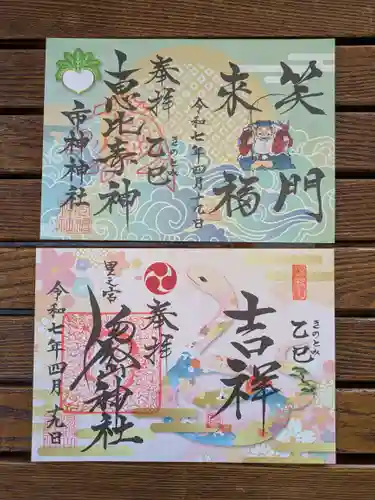 笑門
来福
令和七年四月十九日
奉拝
乙巳
きのとみ
恵比寿神
市神神社
吉祥
乙巳
きのとみ
奉拝
里之宮
神社
令和七年四月十九日